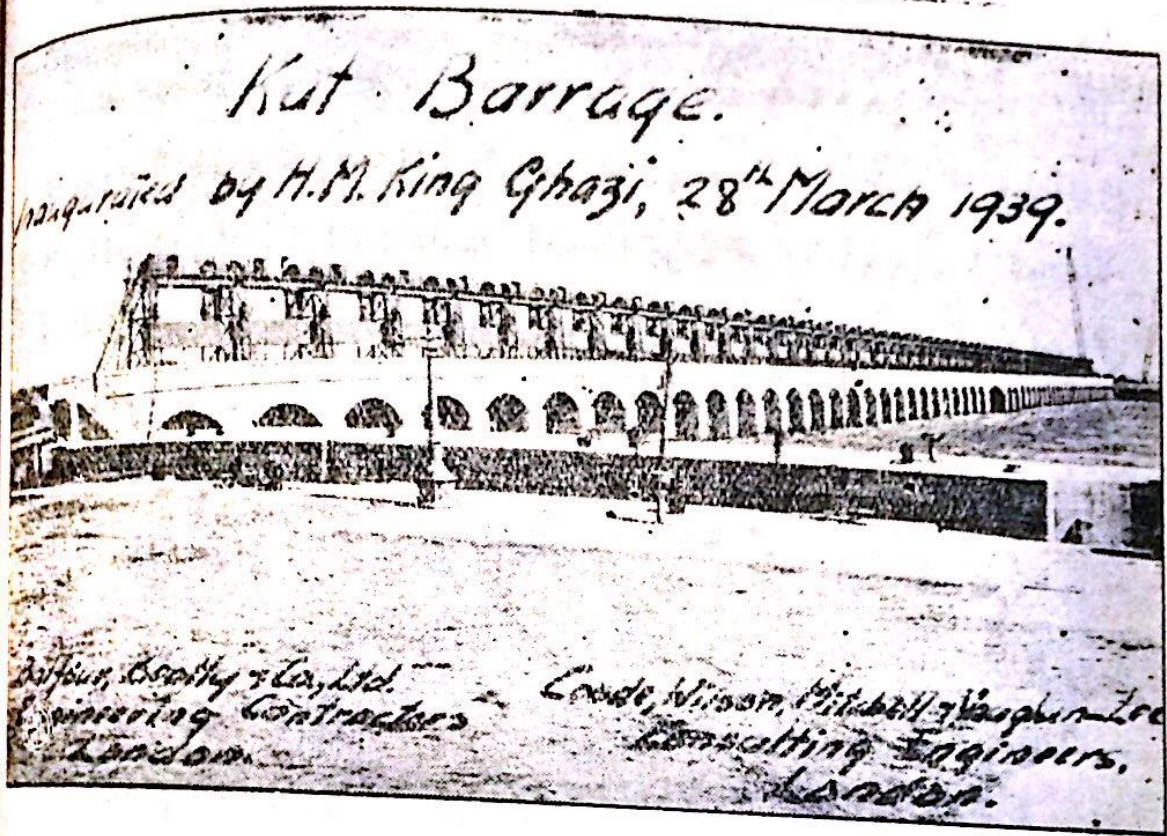 Kut Barrage.
Inaugurated by H.M. King Ghazi, 28th March 1939.
Balfour, Beatty & Co., Ltd.
Engineering Contractors
London.
Coode, Wilson, Mitchell & Vaughan-Lee
Consulting Engineers.
London.